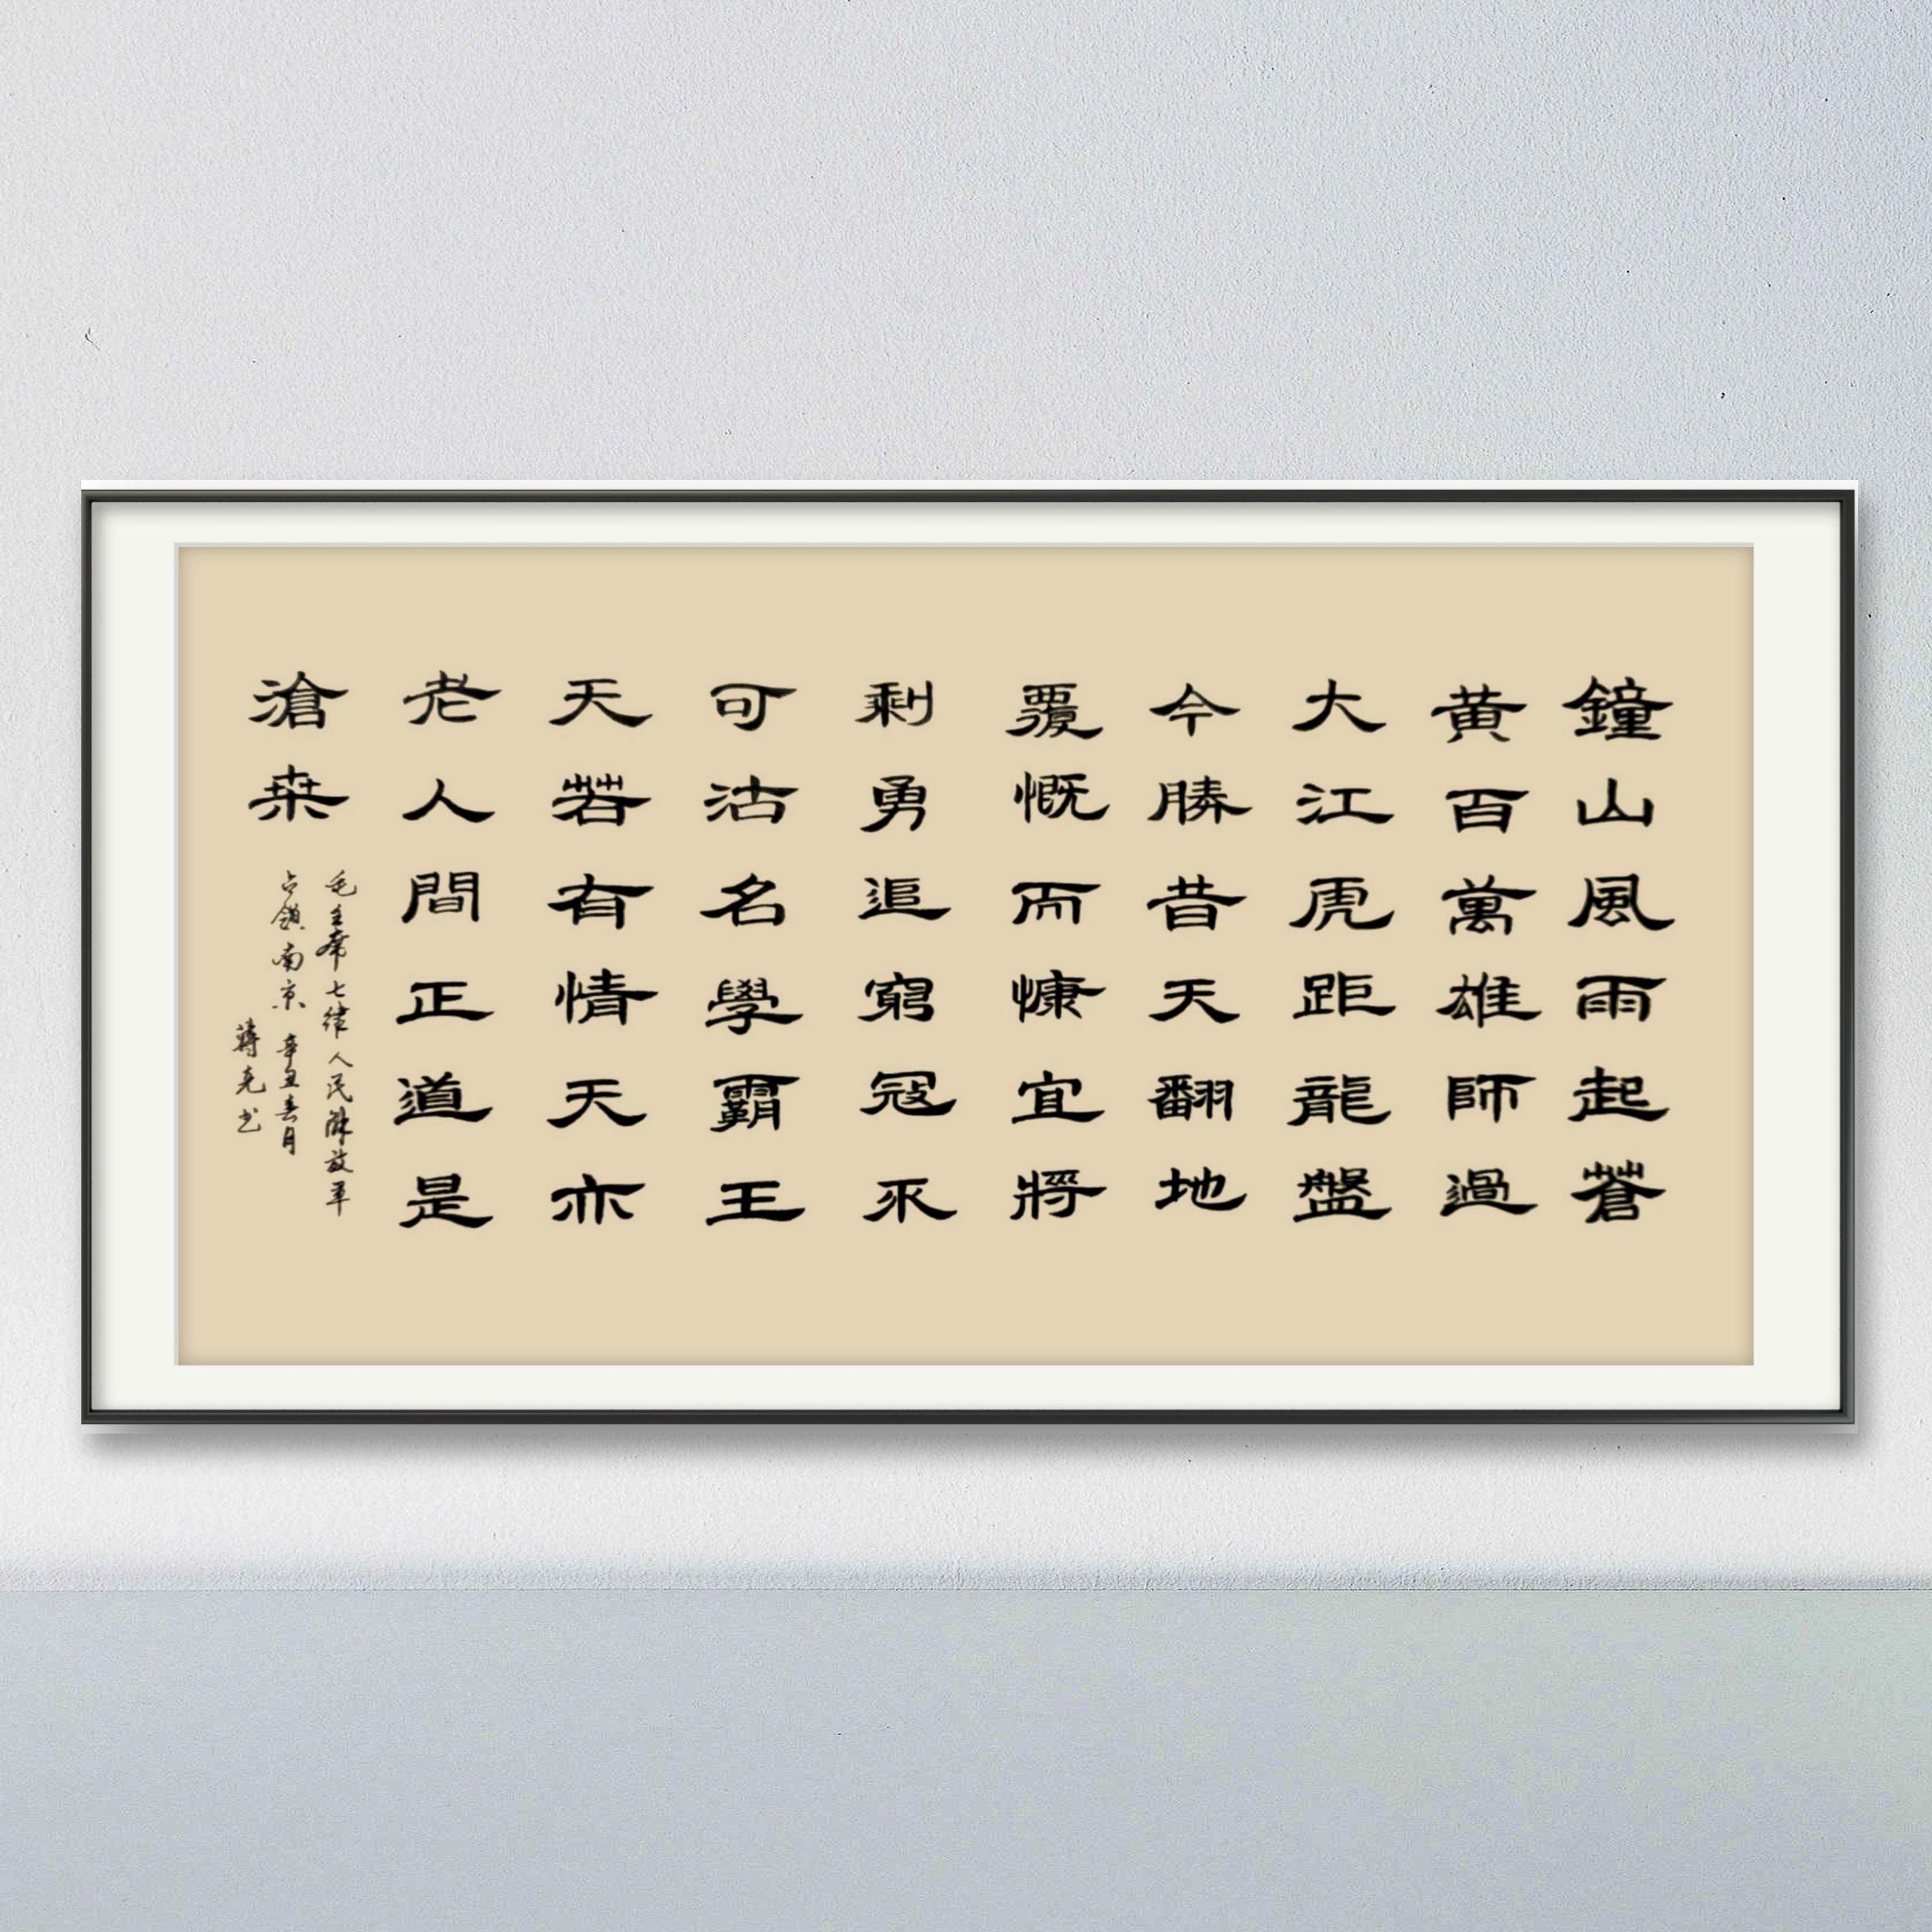 鐘山風雨起蒼
黄百萬雄師過
大江虎距龍盤
今勝昔天翻地
覆慨而慷宜將
剩勇追窮寇不
可沽名學霸王
天若有情天亦
老人間正道是
滄桒
毛主席七律人民解放军
占領南京 辛丑春月
蔣尧书